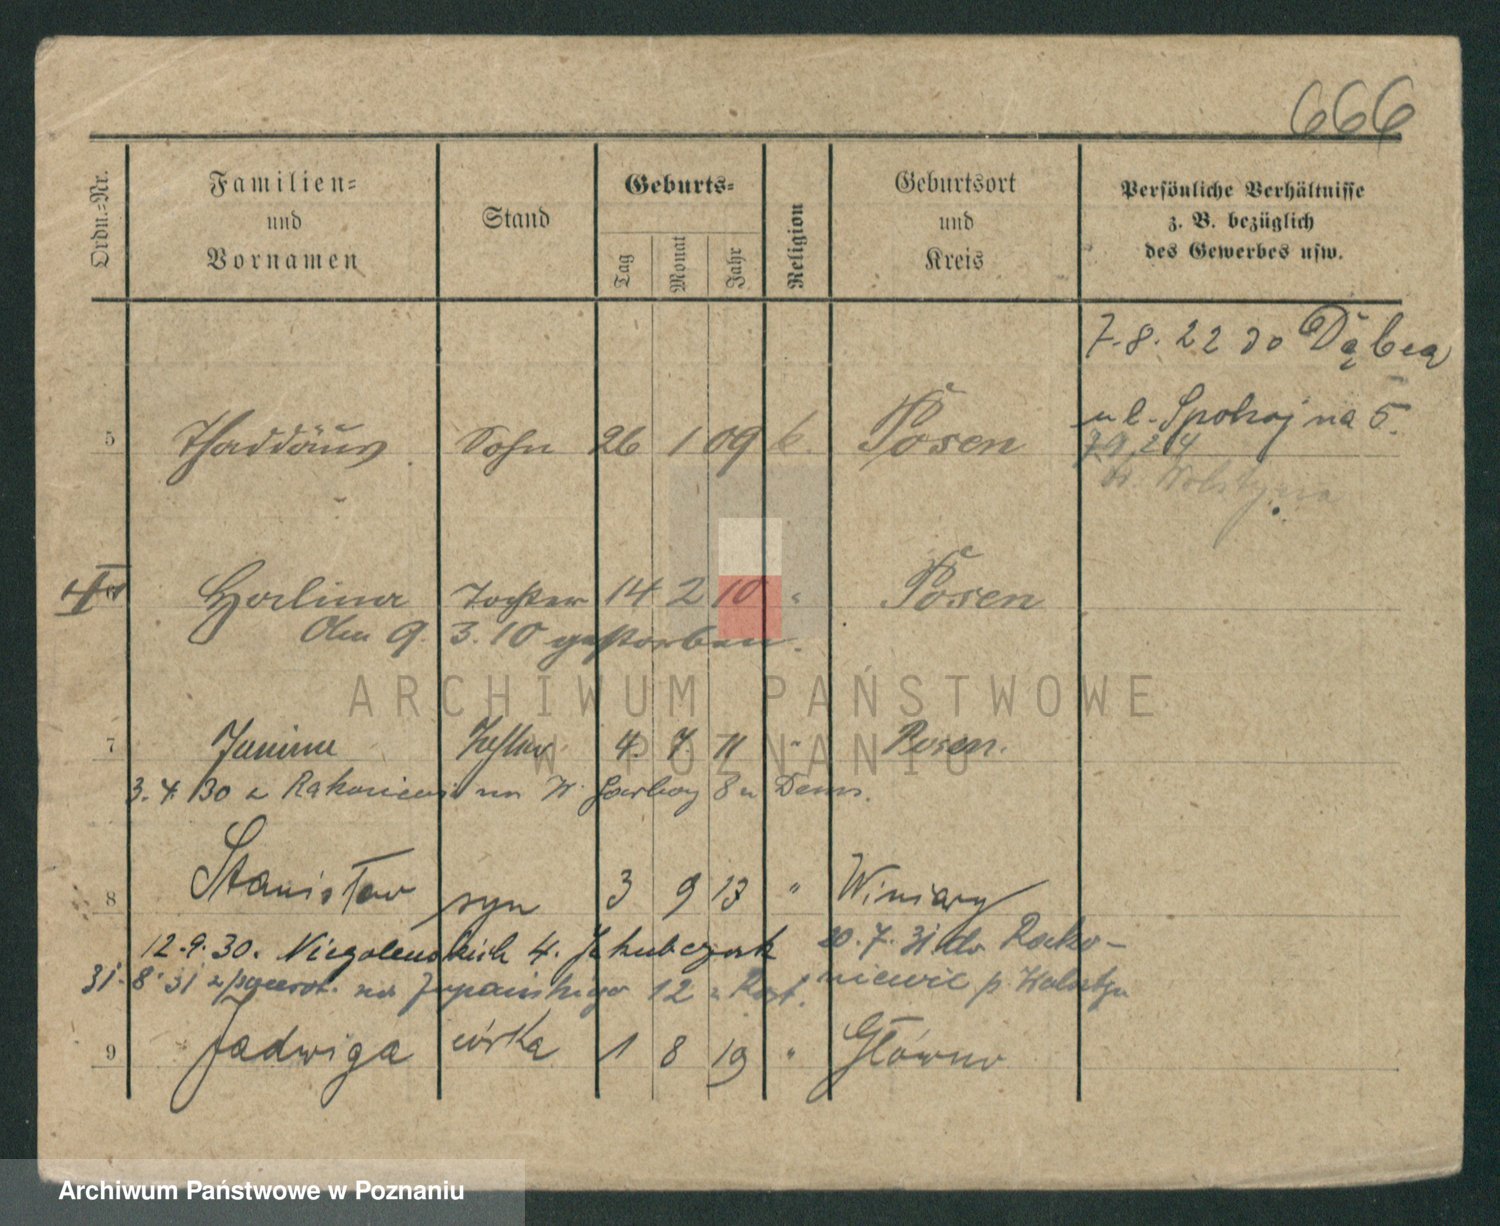 666
Ordn.=Nr.
Familien=
und
Vornamen
Stand
Geburts=
Tag
Monat
Jahr
Religion
Geburtsort
und
Kreis
Persönliche Verhältnisse
z. B. bezüglich
des Gewerbes usw.
7. 8. 22 do Dębca
ul. Spokojna 5.
5 Thaddäus Sohn 26 1 09 k. Posen
Halina Tochter 14 2 10 " Posen
Am 9. 3. 10 gestorben.
7 Janina Tochter 4 7 11 " Posen.
3. 4. 30 z 8 u
8 Stanisław syn 3 9 13 " Winiary
12. 9. 30. 4.
20. 7. 31 do Rako-
31. 8. 31 z powrot. na 12
niewic p. Wolsztyn
9 Jadwiga córka 1 8 19 " Główno
ARCHIWUM PAŃSTWOWE
W POZNANIU
Archiwum Państwowe w Poznaniu